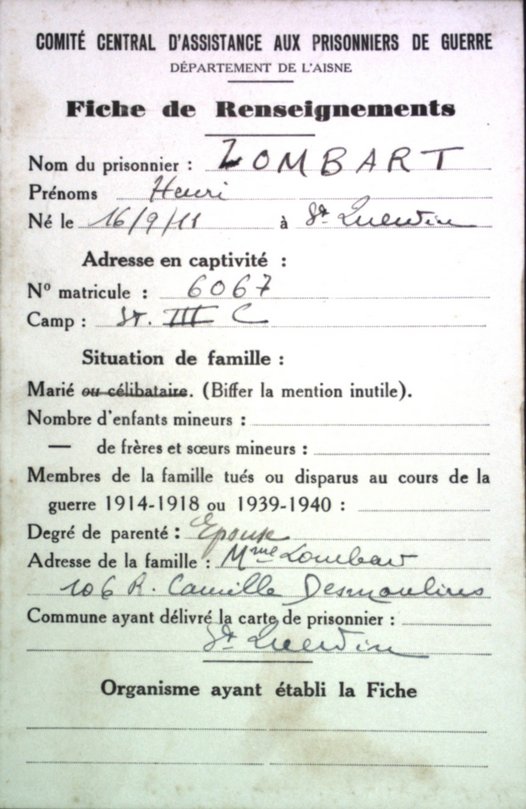 COMITÉ CENTRAL D'ASSISTANCE AUX PRISONNIERS DE GUERRE
DÉPARTEMENT DE L'AISNE
Fiche de Renseignements
Nom du prisonnier : LOMBART
Prénoms Henri
Né le 16/9/11 à St Quentin
Adresse en captivité :
N° matricule : 6067
Camp : St. III C
Situation de famille :
Marié ou célibataire. (Biffer la mention inutile).
Nombre d'enfants mineurs :
— de frères et sœurs mineurs :
Membres de la famille tués ou disparus au cours de la
guerre 1914-1918 ou 1939-1940 :
Degré de parenté : Epouse
Adresse de la famille : Mme Lombart
106 R. Camille Desmoulins
Commune ayant délivré la carte de prisonnier :
St Quentin
Organisme ayant établi la Fiche